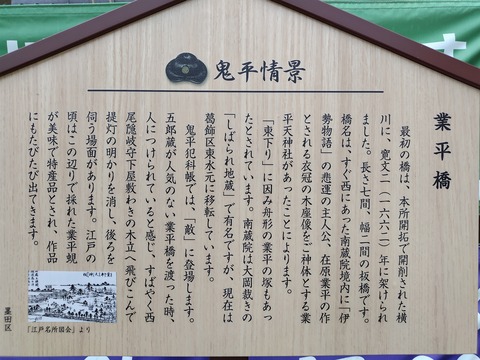 鬼平情景
業平橋
最初の橋は、本所開拓で開削された横
川に、寛文二(一六六二)年に架けられ
ました。長さ七間、幅二間の板橋です。
橋名は、すぐ西にあった南蔵院境内に「伊
勢物語」の悲運の主人公、在原業平の作
とされる衣冠の木座像をご神体とする業
平天神社があったことによります。
「東下り」に因み舟形の業平の塚もあっ
たとされています。南蔵院は大岡裁きの
「しばられ地蔵」で有名ですが、現在は
葛飾区東水元に移転しています。
鬼平犯科帳では、「敵」に登場します。
五郎蔵が人気のない業平橋を渡った時、
人につけられていると感じ、すばやく西
尾隠岐守下屋敷わきの木立へ飛びこんで
提灯の明かりを消し、後ろを
伺う場面があります。江戸の
頃はこの辺りで採れた業平蜆
が美味で特産品とされ、作品
にもたびたび出てきます。
「江戸名所図会」より
墨田区